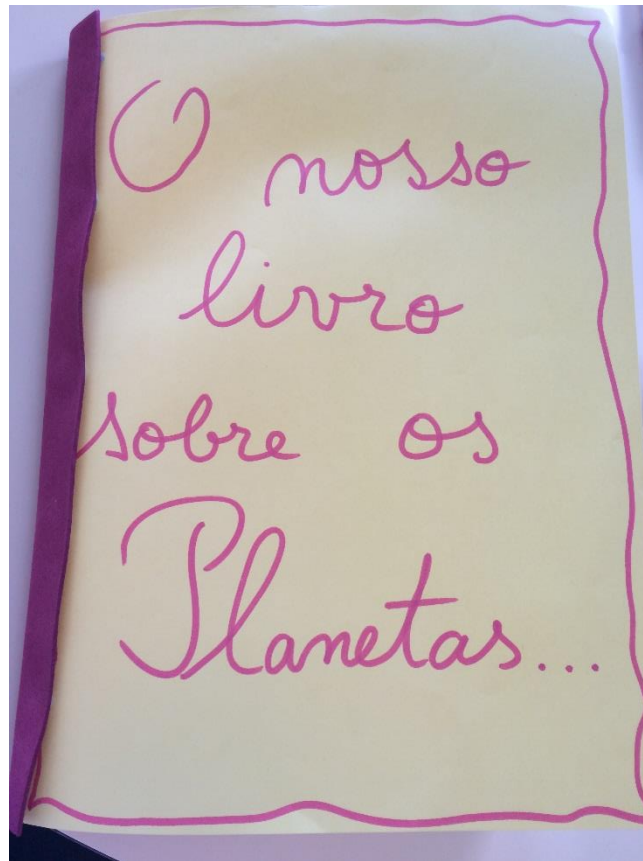 O nosso
livro
sobre os
Planetas...